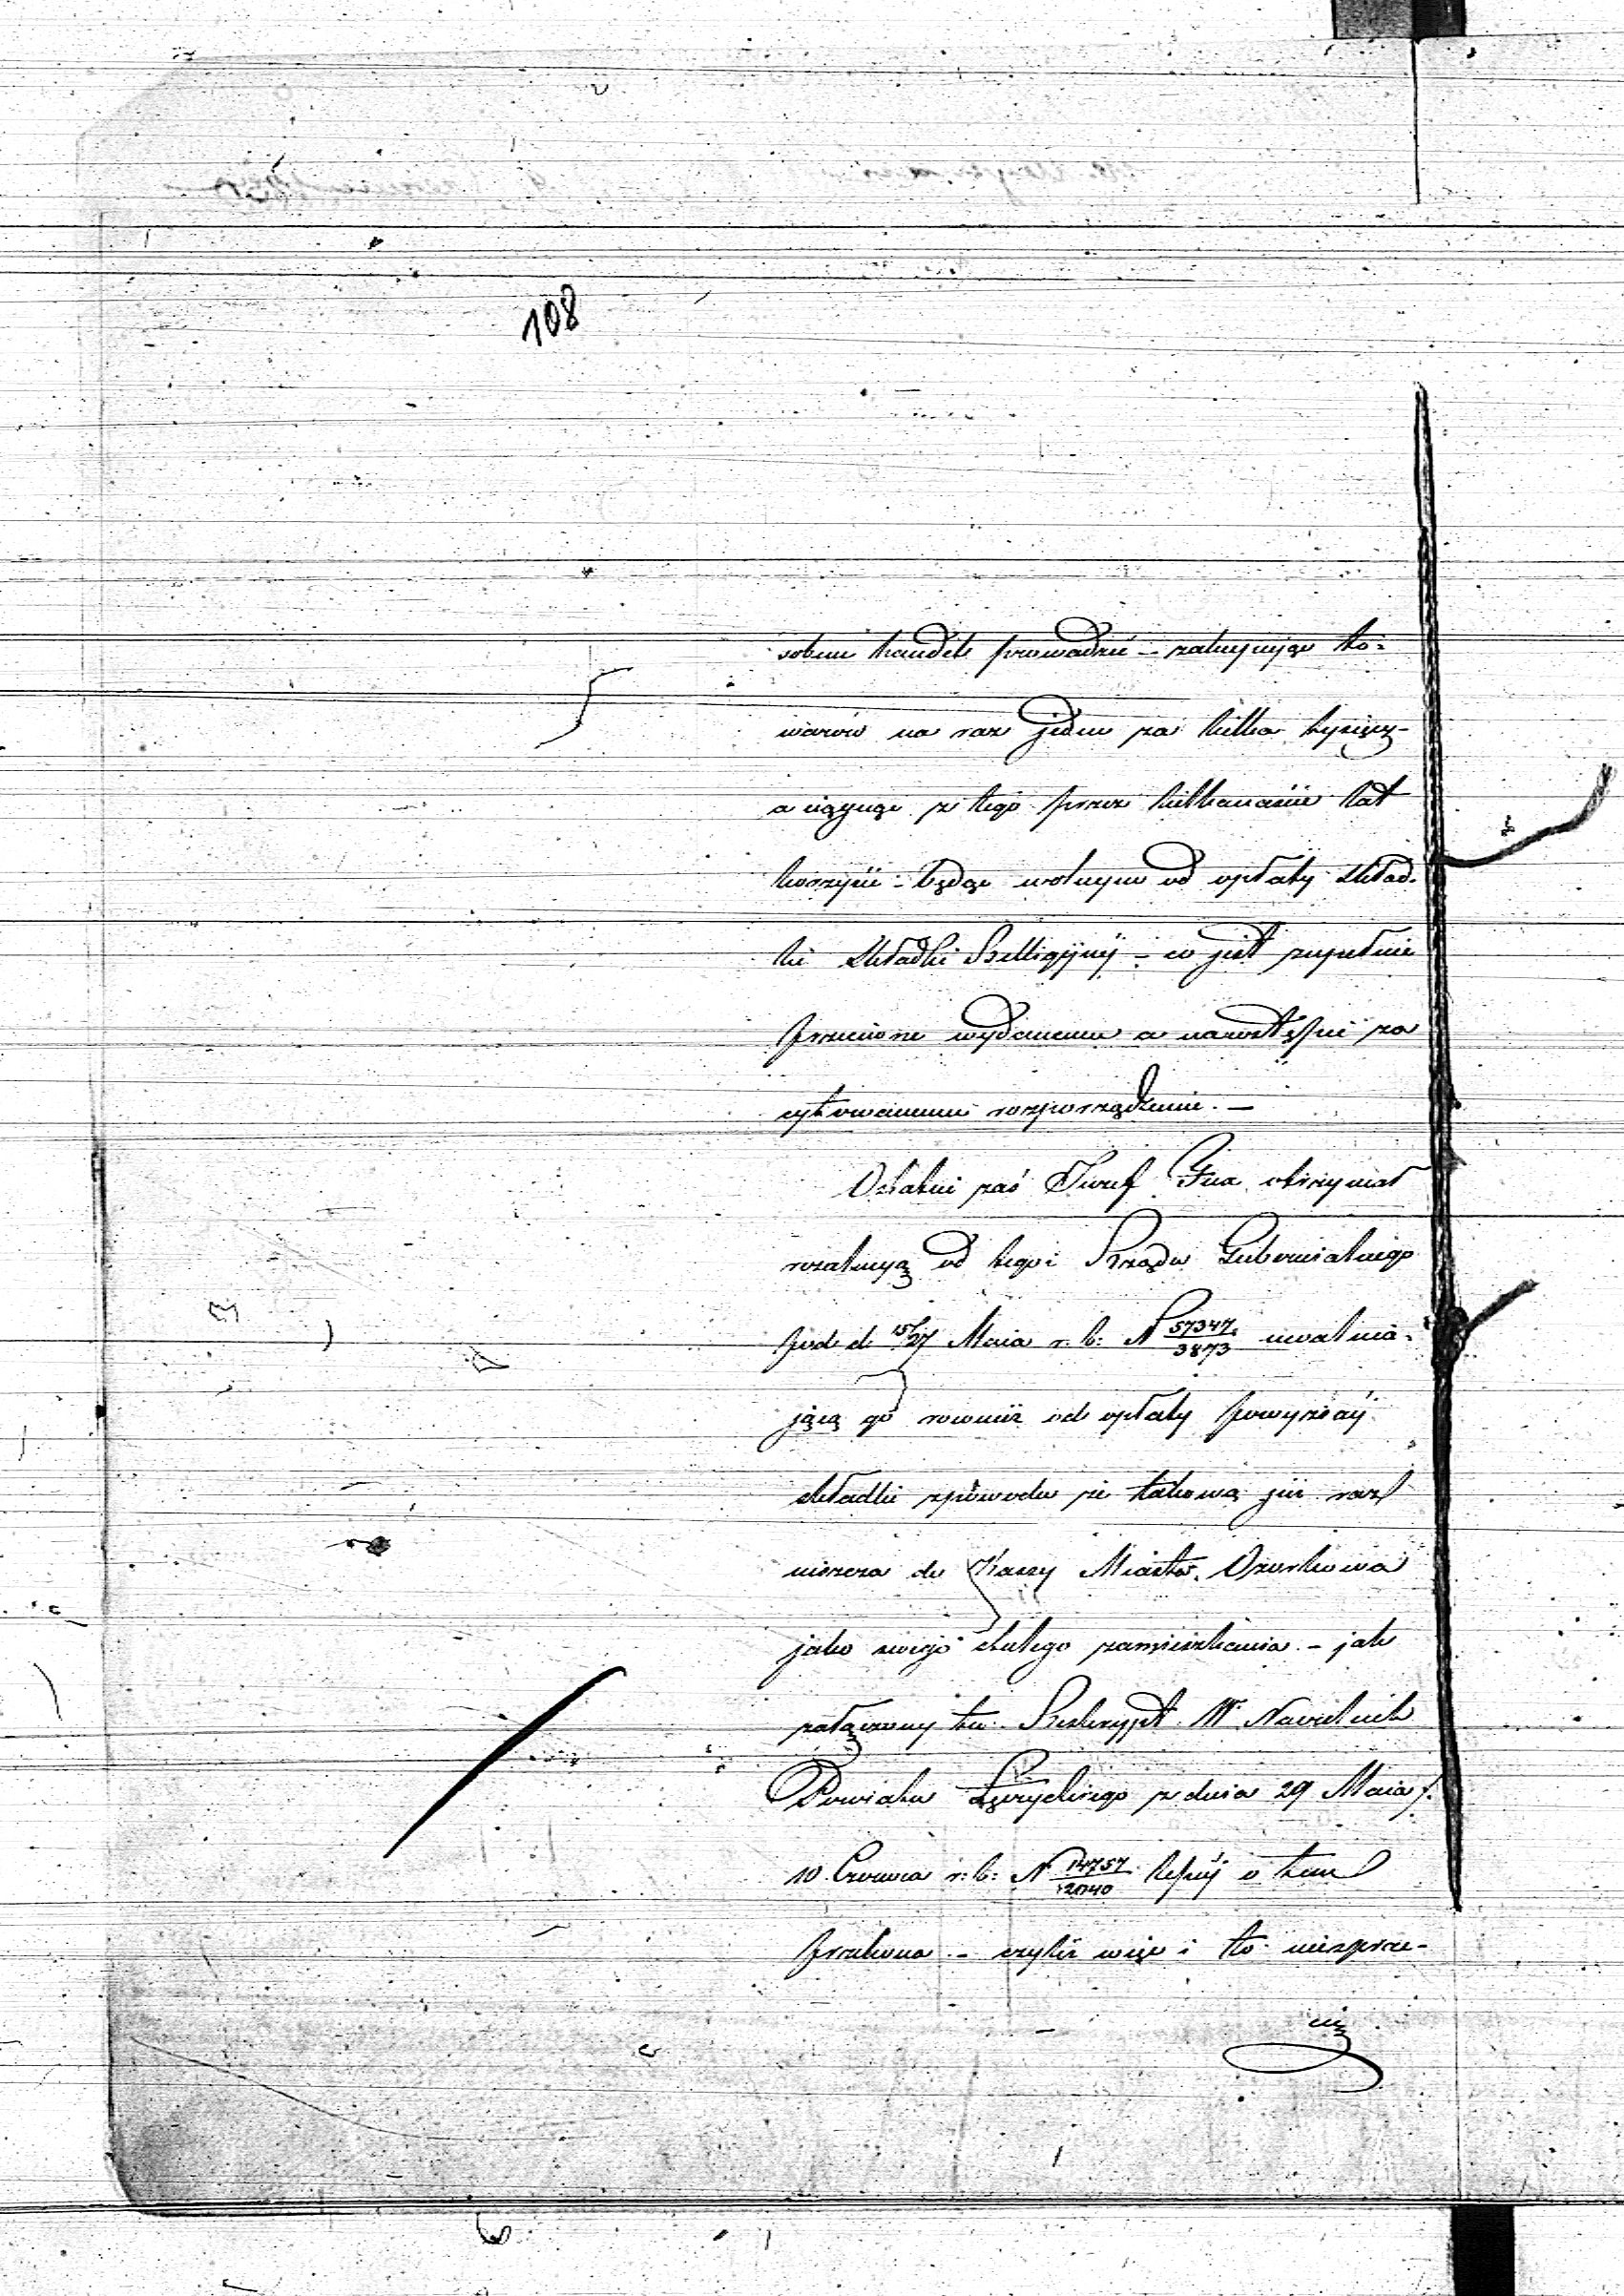 108
sobem handel prowadzić – zakupując to-
warów na raz jeden za kilka tysięcy –
a ciągnąc z tego przez kilkanaście lat
korzyści – będąc wolnym od opłaty skład-
ki składki Relligijnÿ – co jest zupełnie
przeciwne wydanemu a nawstępie za
cytowanemu rozporządzenie. –
Ostatni zaś Jozef Fux otrzymał
rezolucyą od tegoż Rządu Gubernialnego
pod d 15/27 Maia r. b: N 57347/3873 uwalnia-
jącą go rownież od opłaty powyższÿ
składki spowodu że takową już raz
uiszcza do Kassy Miasta Ozorkowa
jako swego stałego zamieszkania – jak
załączony tu Reskrypt W Naczelnik
Powiatu Łęczyckiego z dnia 29 Maia /
10 Czerwca r: b: N 14757/2040 lepiÿ o tem
przekona – czyliż więc i to niezprze-